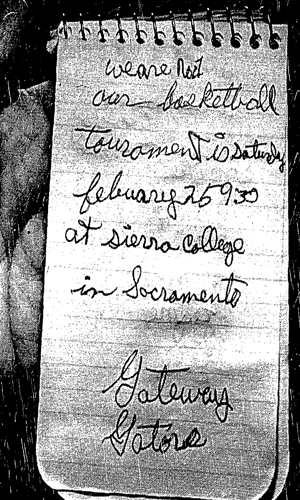 we are Not
our basketball
tourament is saturday
febuary 25 9:30
at sierra college
in Sacramento
Gateway
Gators